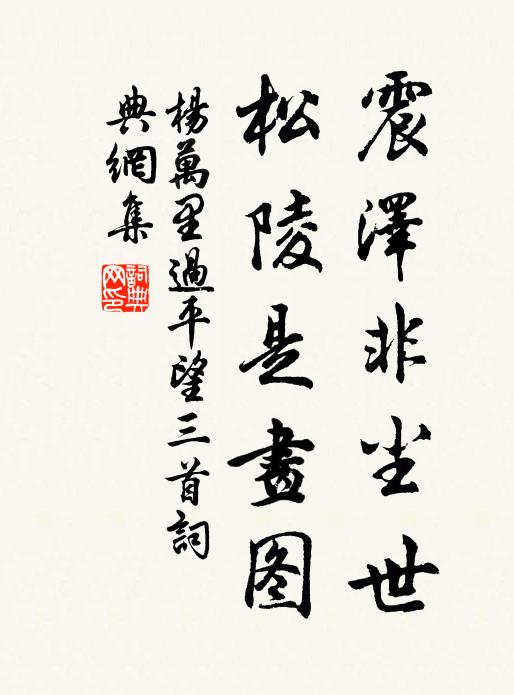 震澤非尘世
松陵是畫图
楊萬里過平望三首詞
典網集
詞典
网印